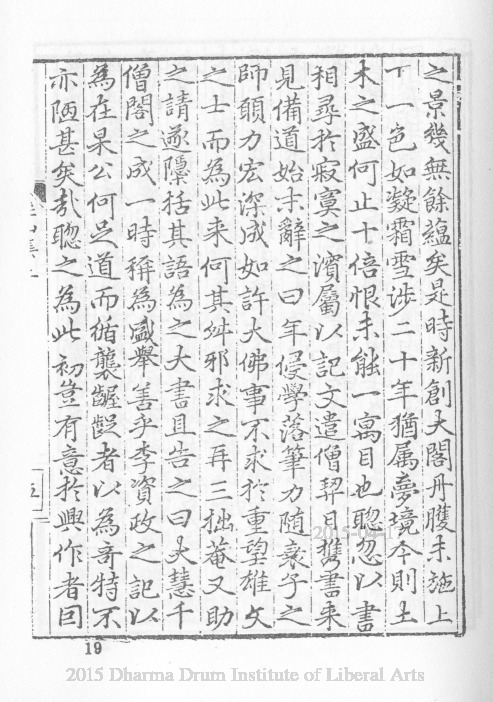 之景幾無餘蘊矣是時新創大閣丹雘未施上
下一色如凝霜雪涉二十年猶属夢境今則土
木之盛何止十倍恨未能一寓目也聦忽以書
相尋於寂寞之濱屬以記文遣僧契日携書来
見備道始末辭之曰年侵學落筆力隨衰子之
師願力宏深成如許大佛事不求於重望雄文
之士而為此来何其舛邪求之再三拙菴又助
之請遂隱括其語為之大書且告之曰大慧千
僧閣之成一時稱為盛舉善乎李資政之記以
為在杲公何足道而循襲齷齪者以為竒特不
亦陋甚矣哉聦之為此初豈有意於興作者囙
五
19
2015 Dharma Drum Institute of Liberal Arts